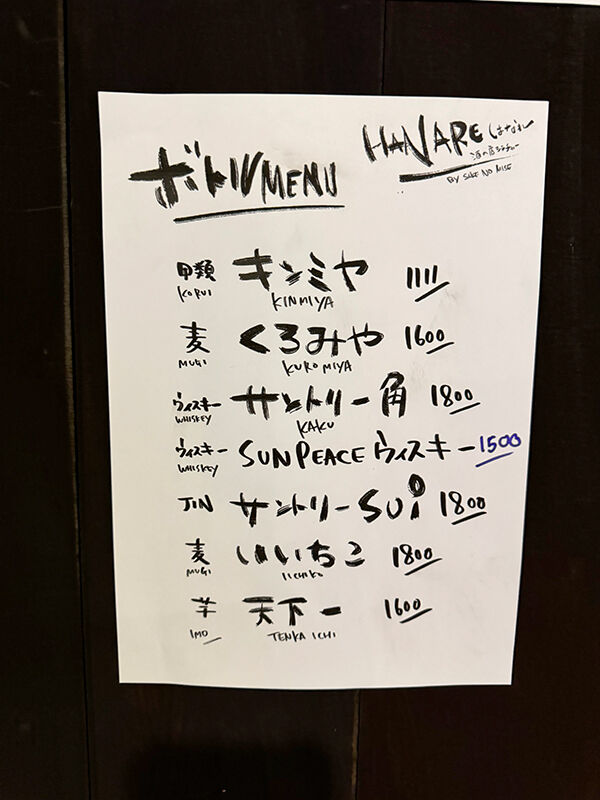 HANARE はなれ
BY SAKE NO MISE
ボトルMENU
甲類 キンミヤ 1111
KORUI KINMIYA
麦 くろみや 1600
MUGI KUROMIYA
ウィスキー サントリー角 1800
WHISKEY KAKU
ウィスキー SUNPEACE ウィスキー 1500
WHISKEY
JIN サントリーSUI 1800
麦 いいちこ 1800
MUGI IICHIKO
芋 天下一 1600
IMO TENKA ICHI